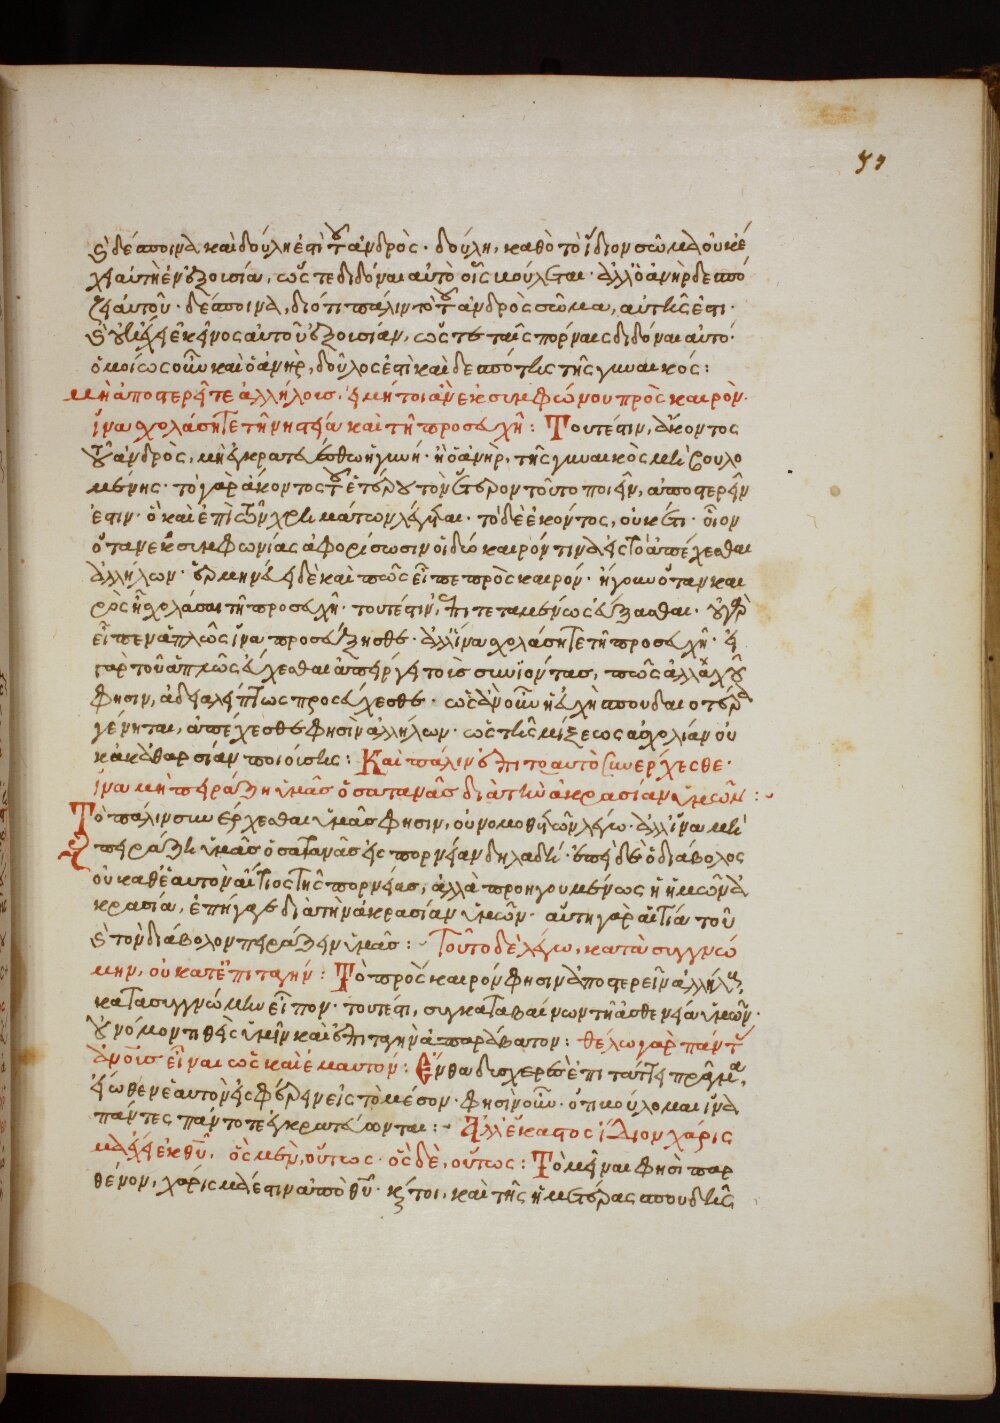 57
καὶ δέσποινα καὶ δούλη ἐστὶ τοῦ ἀνδρός· δούλη, καθὸ τὸ ἴδιον σῶμα οὐκ ἔ
χει αὐτὴ ἐν ἐξουσία, ὥστε διδόναι αὐτὸ οἷς βούλεται· ἀλλ' ὁ ἀνὴρ δεσπό
ζει αὐτοῦ· δέσποινα, διότι πάλιν τὸ τοῦ ἀνδρὸς σῶμα, αὐτῆς ἐστι·
καὶ οὐκ ἔχει ἐκεῖνος αὐτοῦ ἐξουσίαν, ὥστε ταῖς πόρναις διδόναι αὐτό·
ὁμοίως οὖν καὶ ὁ ἀνὴρ, δοῦλος ἐστὶ καὶ δεσπότης τῆς γυναικός:
μὴ ἀποστερεῖτε ἀλλήλους, εἰ μή τοι ἂν ἐκ συμφώνου πρὸς καιρὸν·
ἵνα σχολάσητε τῆ νηστεία καὶ τῆ προσευχῆ: Τουτέστιν, ἄκοντος
τοῦ ἀνδρὸς, μὴ ἐγκρατευέσθω ἡ γυνή· ἢ ὁ ἀνὴρ, τῆς γυναικὸς μὴ βουλο
μένης· τὸ γὰρ ἄκοντος τοῦ ἑτέρου τὸν ἕτερον τοῦτο ποιεῖν, ἀποστερεῖν
ἐστιν· ὃ καὶ ἐπὶ τῶν χρημάτων λέγεται· τὸ δὲ ἑκόντος, οὐκέτι· οἷον
ὅταν ἐκ συμφωνίας ἀφορίσωσιν οἱ δύο καιρόν τινα εἰς τὸ ἀπέχεσθαι
ἀλλήλων· ἑρμηνεύει δὲ καὶ πῶς εἶπε πρὸς καιρόν· ἤγουν ὅταν και
ρὸς ᾖ σχολάσαι τῆ προσευχῆ· τουτέστιν, ἐπιτεταμένως εὔξασθαι· οὐ γὰρ
εἶπεν ἁπλῶς ἵνα προσεύξησθε· ἀλλ' ἵνα σχολάσητε τῆ προσευχῆ· εἰ
γὰρ τοῦ ἁπλῶς εὔχεσθαι ἀπείργε τοὺς συνιόντας, πῶς ἀλλαχοῦ
φησιν, ἀδιαλείπτως προσεύχεσθε· ὡς ἂν οὖν ἡ εὐχὴ σπουδαιοτέρα
γένηται, ἀπέχεσθε φησὶν ἀλλήλων· ὡς τῆς μίξεως ἀσχολίαν οὐ
κ ἀκαθαρσίαν ποιούσης: Καὶ πάλιν ἐπιτοαυτὸ συνέρχεσθε·
ἵνα μὴ πειράζη ὑμᾶς ὁ σατανᾶς διὰ τὴν ἀκρασίαν ὑμῶν:
Τὸ πάλιν συνέρχεσθαι ὑμᾶς φησιν, οὐ νομοθετῶν λέγω· ἀλλ' ἵνα μὴ
πειράζη ὑμᾶς ὁ σατανᾶς εἰς πορνείαν δηλαδή· ἐπεὶ δὲ ὁ διάβολος
οὐ καθ' ἑαυτὸν αἴτιος τῆς πορνείας, ἀλλὰ προηγουμένως ἡ ἡμῶν ἀ
κρασία, ἐπήγαγε διὰ τὴν ἀκρασίαν ὑμῶν· αὕτη γὰρ αἰτία τοῦ
καὶ τὸν διάβολον πειράζειν ὑμᾶς: Τοῦτο δὲ λέγω, κατὰ συγγνώ
μην, οὐ κατ' ἐπιταγήν: Τὸ πρὸς καιρόν φησιν ἀποστερεῖν ἀλλήλους,
κατασυγγνώμην εἶπον· τουτέστι, συγκαταβαίνων τῆ ἀσθενεία ὑμῶν·
οὐ νόμον τιθεὶς ὑμῖν καὶ ἐπιταγὴν ἀπαράβατον: θέλω γὰρ πάντας
ἀνους εἶναι ὡς καὶ ἐμαυτόν: Ἔνθα δυσχερὲς ἐπιτάττει πρᾶγμα,
εἴωθεν ἑαυτὸν εἰς φέρειν εἰς τὸ μέσον· φησὶν οὖν· ὅτι βούλομαι ἵνα
πάντες πάντοτε ἐγκρατεύωνται: Ἀλλ' ἕκαστος ἴδιον χάρις
μα ἔχει ἐκ θῦ, ὃς μὲν, οὕτως· ὃς δὲ, οὕτως: Τὸ μεῖναι φησὶ παρ
θένον, χάρισμά ἐστιν ἀπὸ θῦ· καίτοι, καὶ τῆς ἡμετέρας σπουδῆς